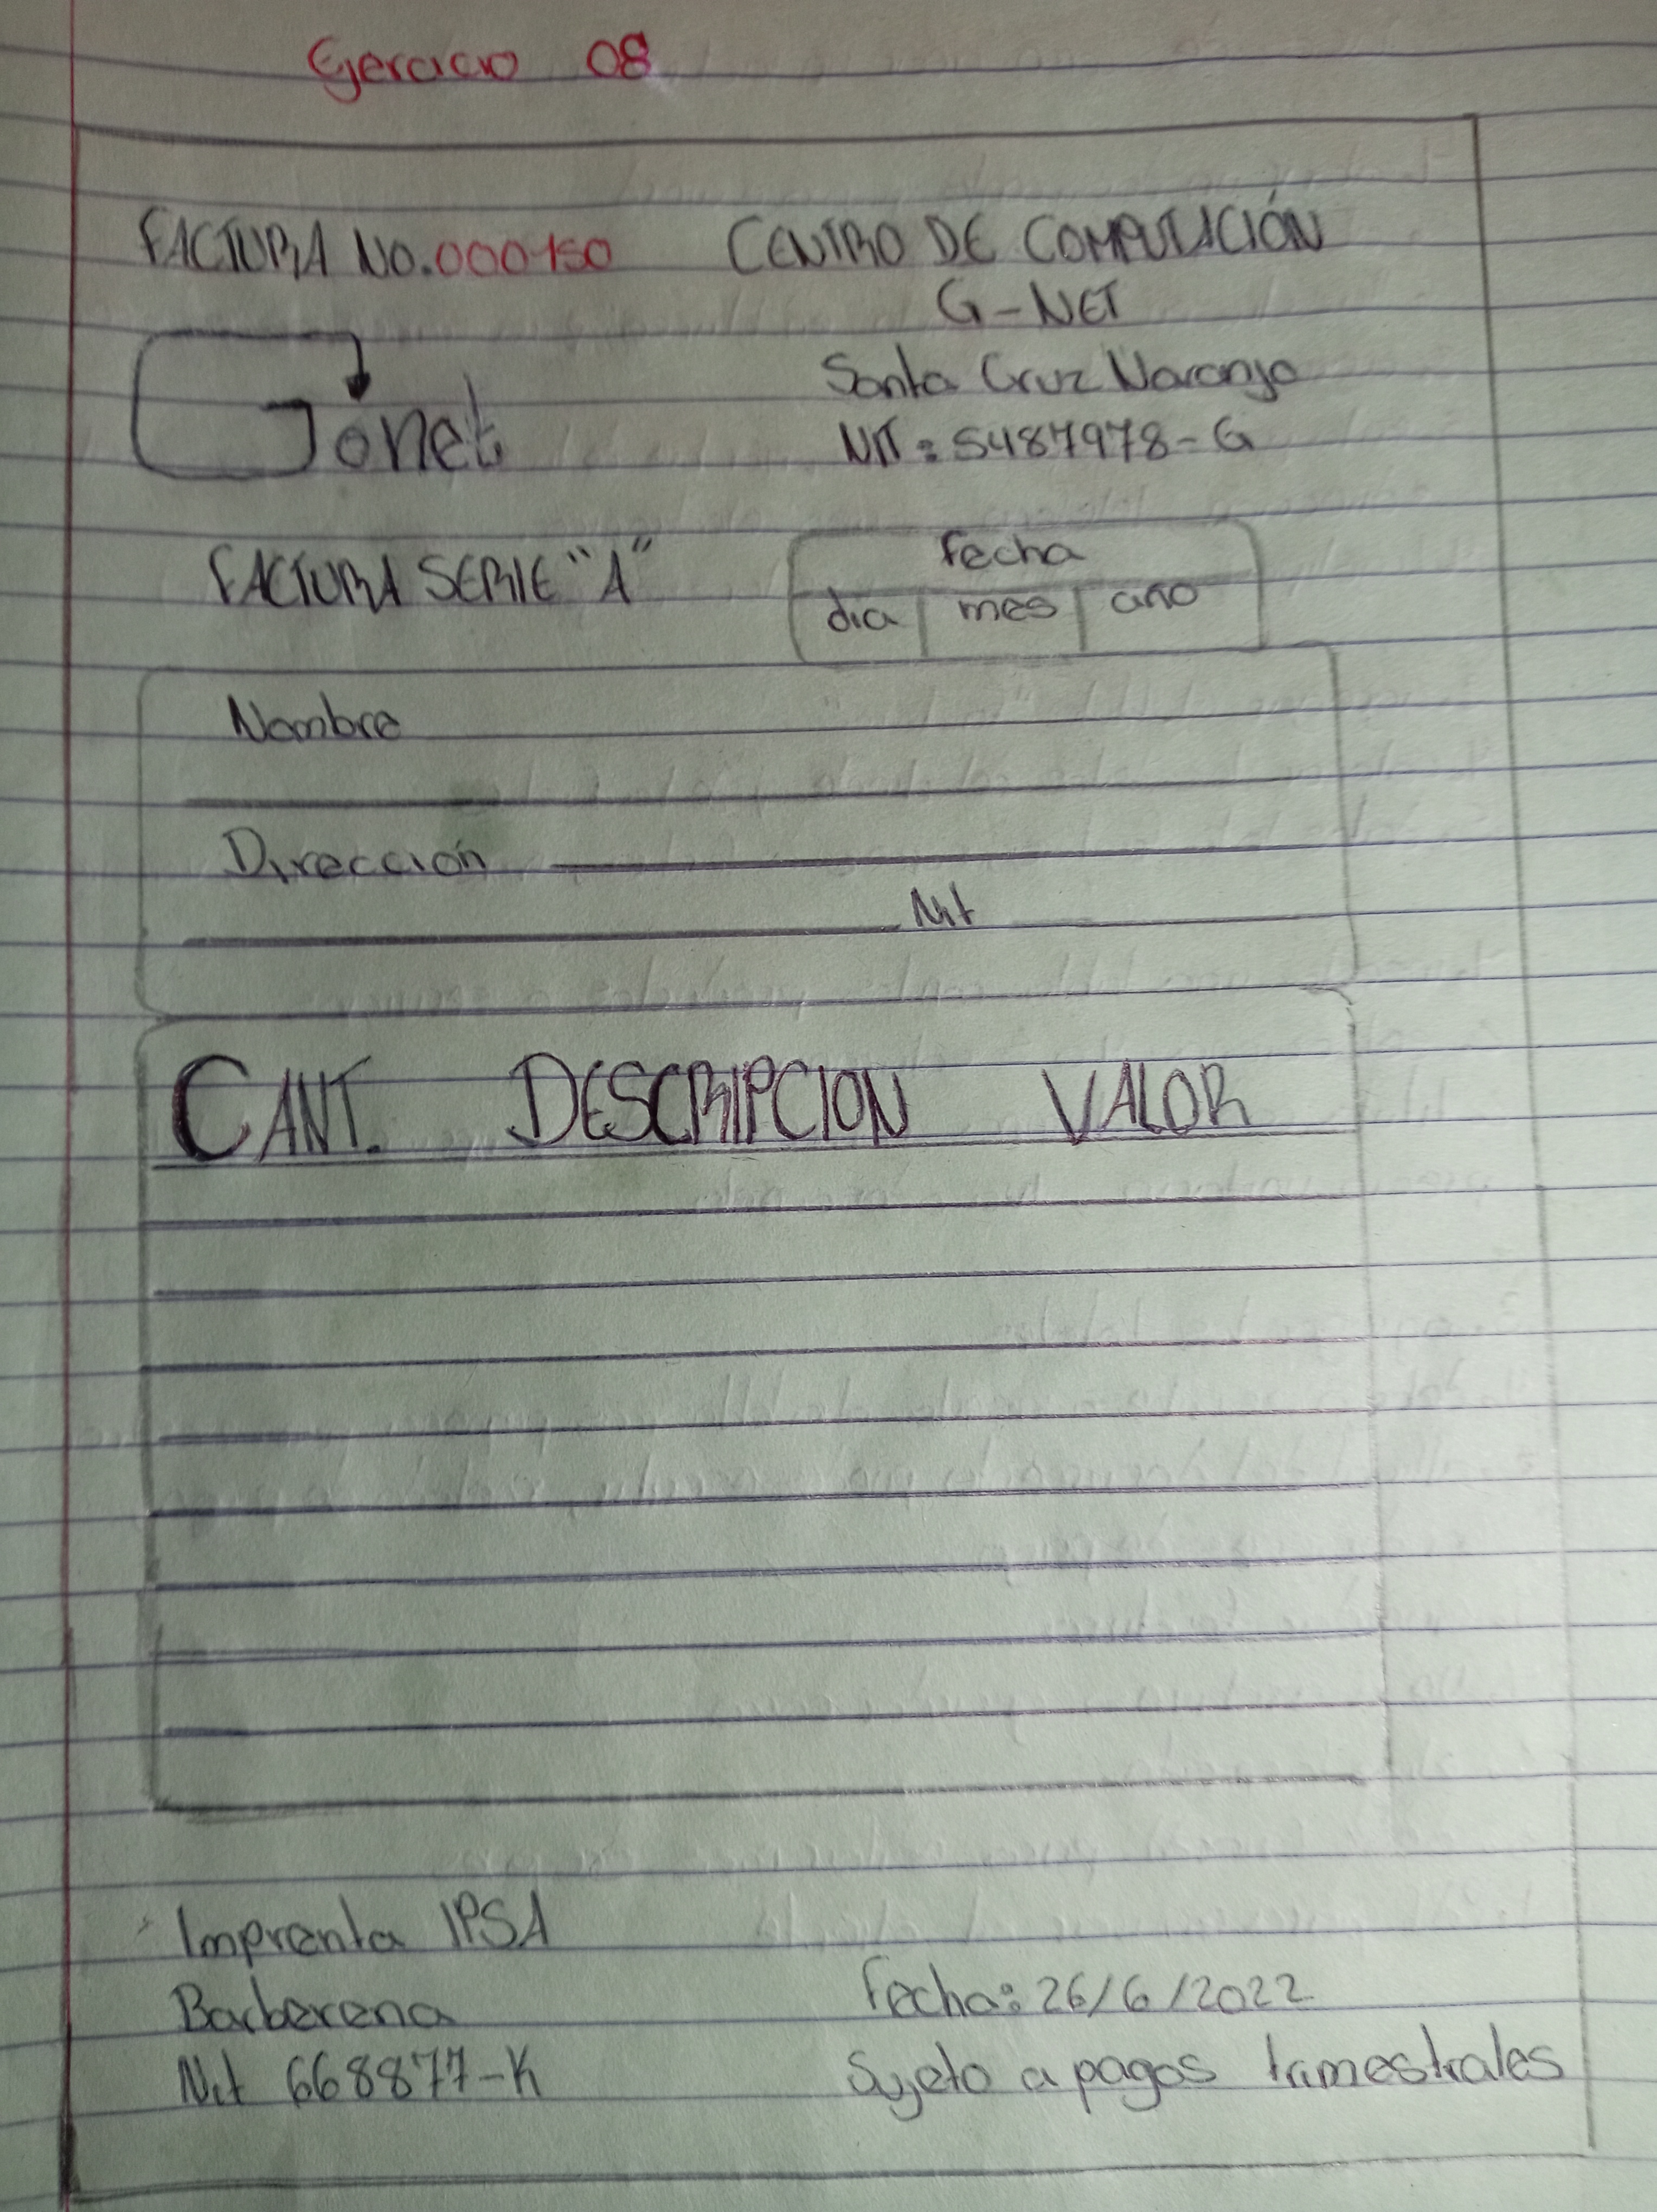 Ejercicio 08
FACTURA NO. 000150
CENTRO DE COMPUTACIÓN
G-NET
Gonet
Santa Cruz Naranjo
NIT: 5487978-G
FACTURA SERIE "A"
fecha
dia mes año
Nombre
Dirección
Nit
CANT. DESCRIPCION VALOR
Imprenta IPSA
Barberena
Nit 668877-K
Fecha: 26/6/2022
Sujeto a pagos trimestrales